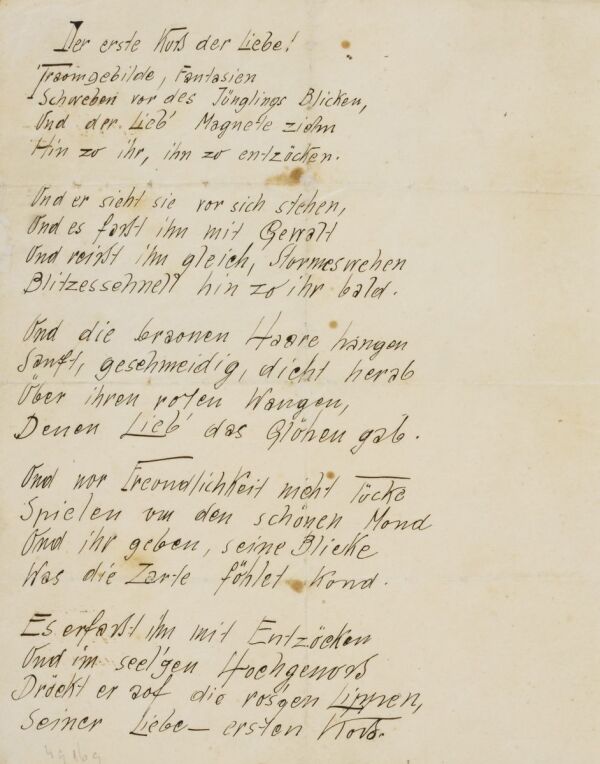 Der erste Kuß der Liebe!
Traumgebilde, Fantasien
Schweben vor des Jünglings Blicken,
Und der Lieb' Magnete ziehn
Hin zu ihr, ihn zu entzücken.
Und er sieht sie vor sich stehen,
Und es faßt ihn mit Gewalt
Und reißt ihn gleich, Sturmeswehen
Blitzesschnell hin zu ihr bald.
Und die braunen Haare hangen
Sanft, geschmeidig, dicht herab
Über ihren roten Wangen,
Denen Lieb' das Glühen gab.
Und nur Freundlichkeit nicht Tücke
Spielen um den schönen Mond
Und ihr geben, seine Blicke
Was die Zarte fühlet kund.
Es erfaßt ihn mit Entzücken
Und im seel'gen Hochgenuß
Drückt er auf die ros'gen Lippen,
Seiner Liebe – ersten Kuß.